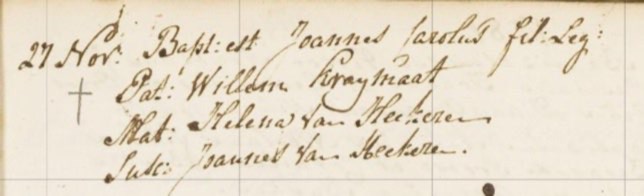 27 Nov: Bapt: est Joannes Carolus fil: Leg:
Pat: Willem Kraymaat
Mat: Helena Van Heekeren
Susc: Joannes Van Heekeren.